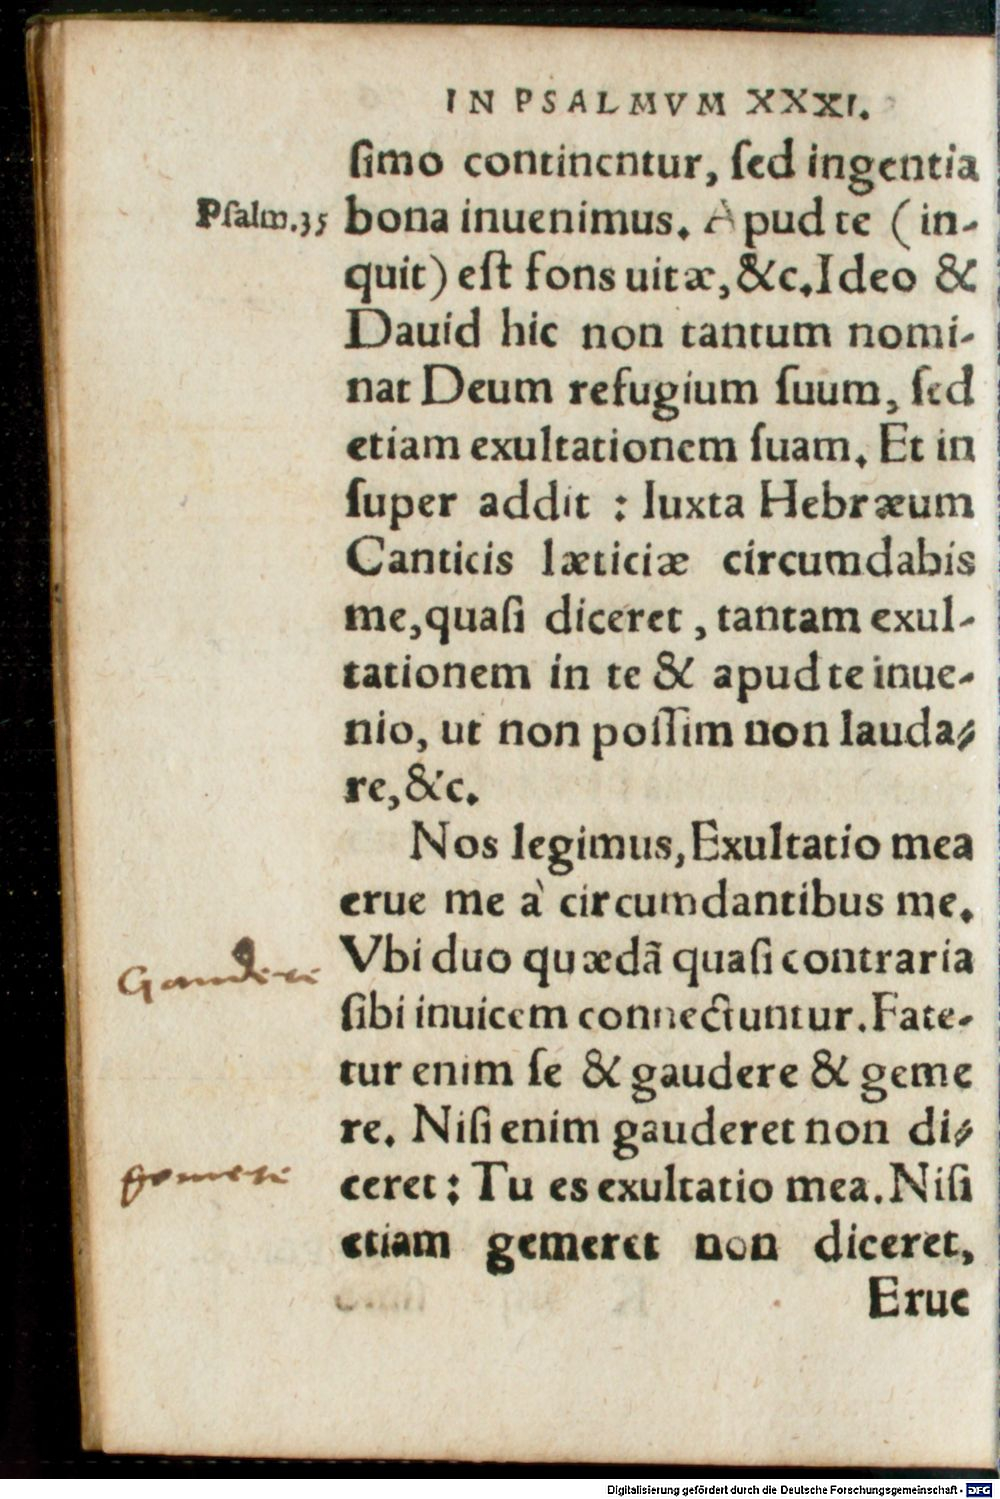 IN PSALMVM XXXI.
ſimo continentur, ſed ingentia
Pſalm.35
bona inuenimus. Apud te (in-
quit) eſt fons uitæ, &c. Ideo &
Dauid hic non tantum nomi-
nat Deum refugium ſuum, ſed
etiam exultationem ſuam. Et in
ſuper addit : Iuxta Hebræum
Canticis læticiæ circumdabis
me, quaſi diceret, tantam exul-
tationem in te & apud te inue-
nio, ut non poſſim non lauda-
re, &c.
Nos legimus, Exultatio mea
erue me à circumdantibus me.
Gaudere
Vbi duo quædã quaſi contraria
ſibi inuicem connectuntur. Fate-
tur enim ſe & gaudere & geme
re. Niſi enim gauderet non di-
gemere
ceret : Tu es exultatio mea. Niſi
etiam gemeret non diceret,
Erue
Digitalisierung gefördert durch die Deutsche Forschungsgemeinschaft - DFG